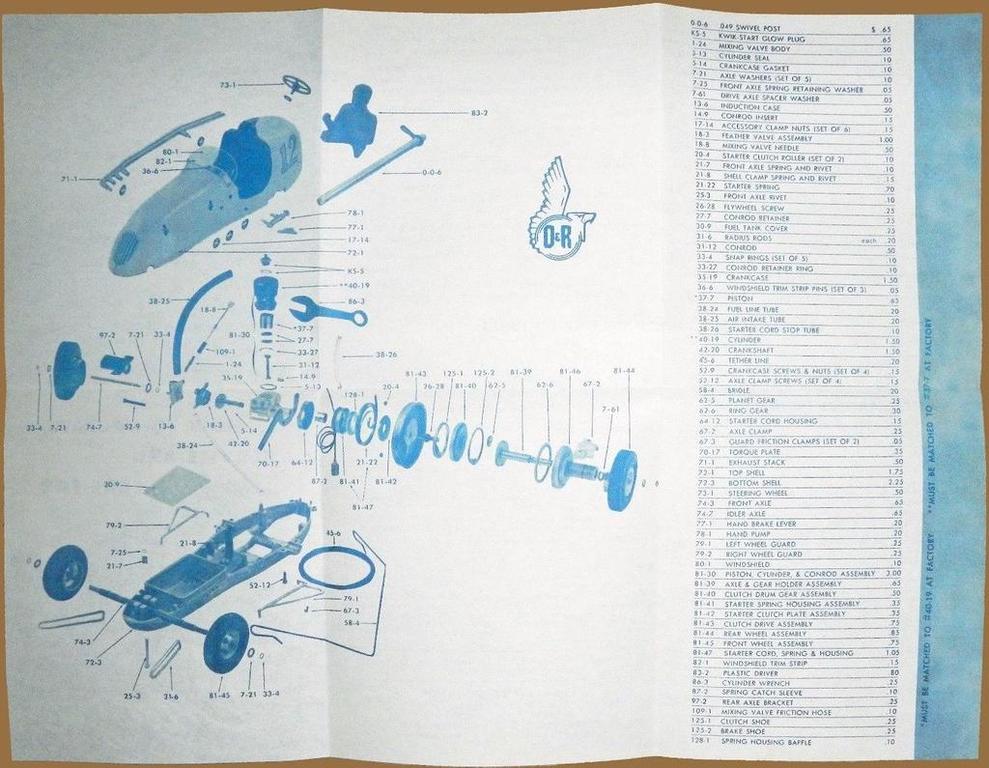 73-1
83-2
80-1
82-1
36-6
71-1
12
0-0-6
78-1
77-1
17-14
72-1
O&R
KS-5
**40-19
86-3
38-25
18-8
*37-7
81-30
27-7
33-27
31-12
109-1
1-24
35-19
14-9
5-13
38-26
97-2
7-21
33-4
20-4
81-43
125-1
125-2
81-39
81-46
81-44
26-28
81-40
62-6
67-2
7-61
128-1
33-4
7-21
74-7
52-9
13-6
18-3
5-14
42-20
38-24
70-17
64-12
87-2
21-22
81-41
81-42
81-47
30-9
79-2
7-25
21-7
21-8
45-6
52-12
79-1
67-3
58-4
74-3
72-3
25-3
21-6
81-45
7-21
33-4
0-0-6 .049 SWIVEL POST $ .65
KS-5 KWIK-START GLOW PLUG .65
1-24 MIXING VALVE BODY .50
5-13 CYLINDER SEAL .10
5-14 CRANKCASE GASKET .10
7-21 AXLE WASHERS (SET OF 5) .10
7-25 FRONT AXLE SPRING RETAINING WASHER .05
7-61 DRIVE AXLE SPACER WASHER .05
13-6 INDUCTION CASE .50
14-9 CONROD INSERT .15
17-14 ACCESSORY CLAMP NUTS (SET OF 6) .15
18-3 FEATHER VALVE ASSEMBLY 1.00
18-8 MIXING VALVE NEEDLE .50
20-4 STARTER CLUTCH ROLLER (SET OF 2) .10
21-7 FRONT AXLE SPRING AND RIVET .10
21-8 SHELL CLAMP SPRING AND RIVET .15
21-22 STARTER SPRING .70
25-3 FRONT AXLE RIVET .10
26-28 FLYWHEEL SCREW .25
27-7 CONROD RETAINER .25
30-9 FUEL TANK COVER .25
31-6 RADIUS RODS each .20
31-12 CONROD .50
33-4 SNAP RINGS (SET OF 5) .10
33-27 CONROD RETAINER RING .10
35-19 CRANKCASE 1.50
36-6 WINDSHIELD TRIM STRIP PINS (SET OF 3) .05
*37-7 PISTON .65
38-24 FUEL LINE TUBE .20
38-25 AIR INTAKE TUBE .20
38-26 STARTER CORD STOP TUBE .10
**40-19 CYLINDER 1.50
42-20 CRANKSHAFT 1.50
45-6 TETHER LINE .20
52-9 CRANKCASE SCREWS & NUTS (SET OF 4) .15
52-12 AXLE CLAMP SCREWS (SET OF 4) .15
58-4 BRIDLE .20
62-5 PLANET GEAR .25
62-6 RING GEAR .30
64-12 STARTER CORD HOUSING .15
67-2 AXLE CLAMP .25
67-3 GUARD FRICTION CLAMPS (SET OF 2) .05
70-17 TORQUE PLATE .35
71-1 EXHAUST STACK .50
72-1 TOP SHELL 1.75
72-3 BOTTOM SHELL 2.25
73-1 STEERING WHEEL .50
74-3 FRONT AXLE .65
74-7 IDLER AXLE .65
77-1 HAND BRAKE LEVER .20
78-1 HAND PUMP .20
79-1 LEFT WHEEL GUARD .25
79-2 RIGHT WHEEL GUARD .25
80-1 WINDSHIELD .10
81-30 PISTON, CYLINDER, & CONROD ASSEMBLY 3.00
81-39 AXLE & GEAR HOLDER ASSEMBLY .65
81-40 CLUTCH DRUM GEAR ASSEMBLY .50
81-41 STARTER SPRING HOUSING ASSEMBLY .35
81-42 STARTER CLUTCH PLATE ASSEMBLY .35
81-43 CLUTCH DRIVE ASSEMBLY .75
81-44 REAR WHEEL ASSEMBLY .85
81-45 FRONT WHEEL ASSEMBLY .75
81-47 STARTER CORD, SPRING & HOUSING 1.05
82-1 WINDSHIELD TRIM STRIP .15
83-2 PLASTIC DRIVER .80
86-3 CYLINDER WRENCH .25
87-2 SPRING CATCH SLEEVE .10
97-2 REAR AXLE BRACKET .25
109-1 MIXING VALVE FRICTION HOSE .10
125-1 CLUTCH SHOE .25
125-2 BRAKE SHOE .25
128-1 SPRING HOUSING BAFFLE .10
*MUST BE MATCHED TO #40-19 AT FACTORY **MUST BE MATCHED TO #37-7 AT FACTORY